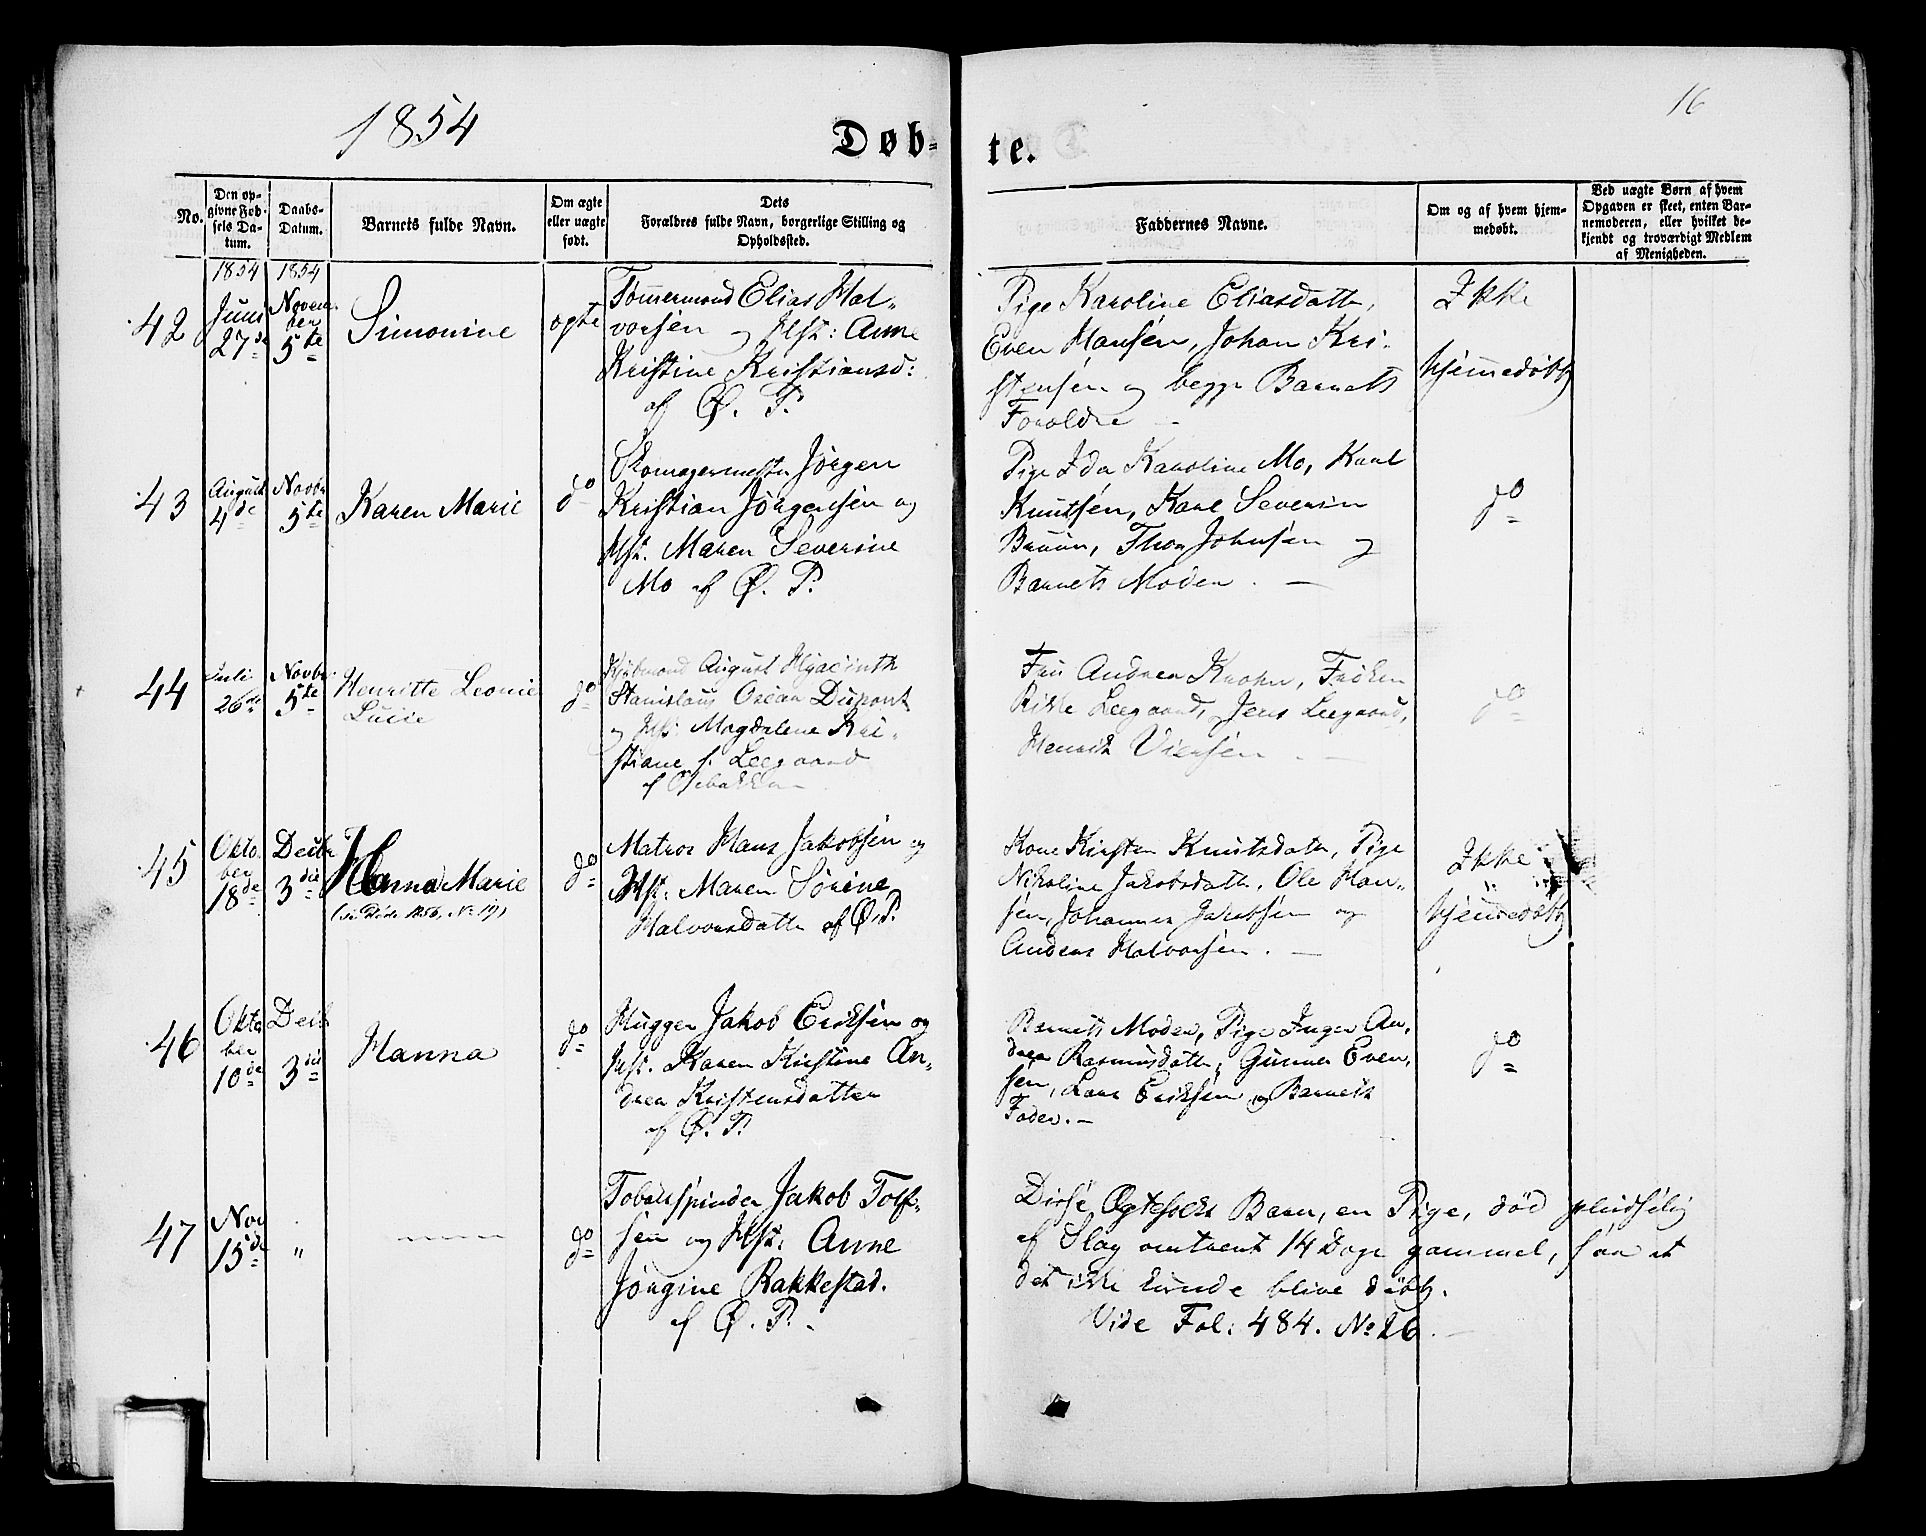 1854
16
Døb-
te.
No.
Den op-
givne Fød-
sels Da-
tum.
Daabs-
Datum.
Barnets fulde Navn.
Om ægte
eller uægte
født.
Dets
Forældres fulde Navn, borgerlige Stilling og
Opholdssted.
Faddernes Navne.
Om og af hvem hjem-
medøbt.
Ved uægte Børn af hvem
Opgaven er skeet, enten Bar-
nemoderen, eller hvilket be-
kjendt og troværdigt Medlem
af Menigheden.
1854
1854
42
Juni
27de
Novem-
ber
5te
Simonine
ægte
Tømmermand Elias Hal-
vorsen og Hst: Anne
Kristine Kristiansd:
af Ø. P.
Pige Karoline Eliasdatter,
Even Hansen, Johan Kri-
stensen og begge Barnets
Forældre
Ikke
hjemmedøbt
43
August
4de
Novbr
5te
Karen Marie
do
Skomagermester Jörgen
Kristian Jörgensen og
Hst. Maren Severine
Mo af Ø. P.
Pige Ida Karoline Mo, Karl
Knutsen, Karl Severin
Bruun, Thor Johnsen og
Barnets Moder.
do
44
Juli
26de
Novbr
5te
Henritte Leonie
Lucie
do
Kjöbmand August Hyacinth
Stanislaus Oscar Dupont
og Hst: Magdalene Kri-
stiane f. Leegaard
af Osebakken
Fru Andrea Krohn, Fröken
Rikke Leegaard, Jens Leegaard,
Henrik
do
45
Okto
ber
18de
Decbr
3die
Hanna Marie
(se Döde 1856, No 19)
do
Matros Hans Jakobsen og
Hst: Maren Sörine
Halvorsdatter af Ø. P.
Kone Kirsten Knutsdatter, Pige
Nikoline Jakobsdatter, Ole Han-
sen, Johannes Jakobsen og
Anders Halvorsen.
Ikke
hjemmedøbt
46
Okto
ber
10de
Decbr
3die
Hanna
do
Hugger Jakob Eriksen og
Hst. Karen Kristine An-
drea Kristensdatter
af Ø. P.
Barnets Moder, Pige Inger An-
drea Rasmusdatter, Gunner Even-
sen, Lars Eriksen og Barnets
Fader.
do
47
Nov
15de
"
do
Tobaksspinder Jakob Tolf-
sen og Hst: Anne
Jörgine Rakkestad.
af Ø. P.
Disse Ægtefolks Barn, en Pige, död pludselig
af Slag omtrent 14 Dage gammel, saa at
det ikke kunde blive döbt.
Vide Fol: 484. No 26.